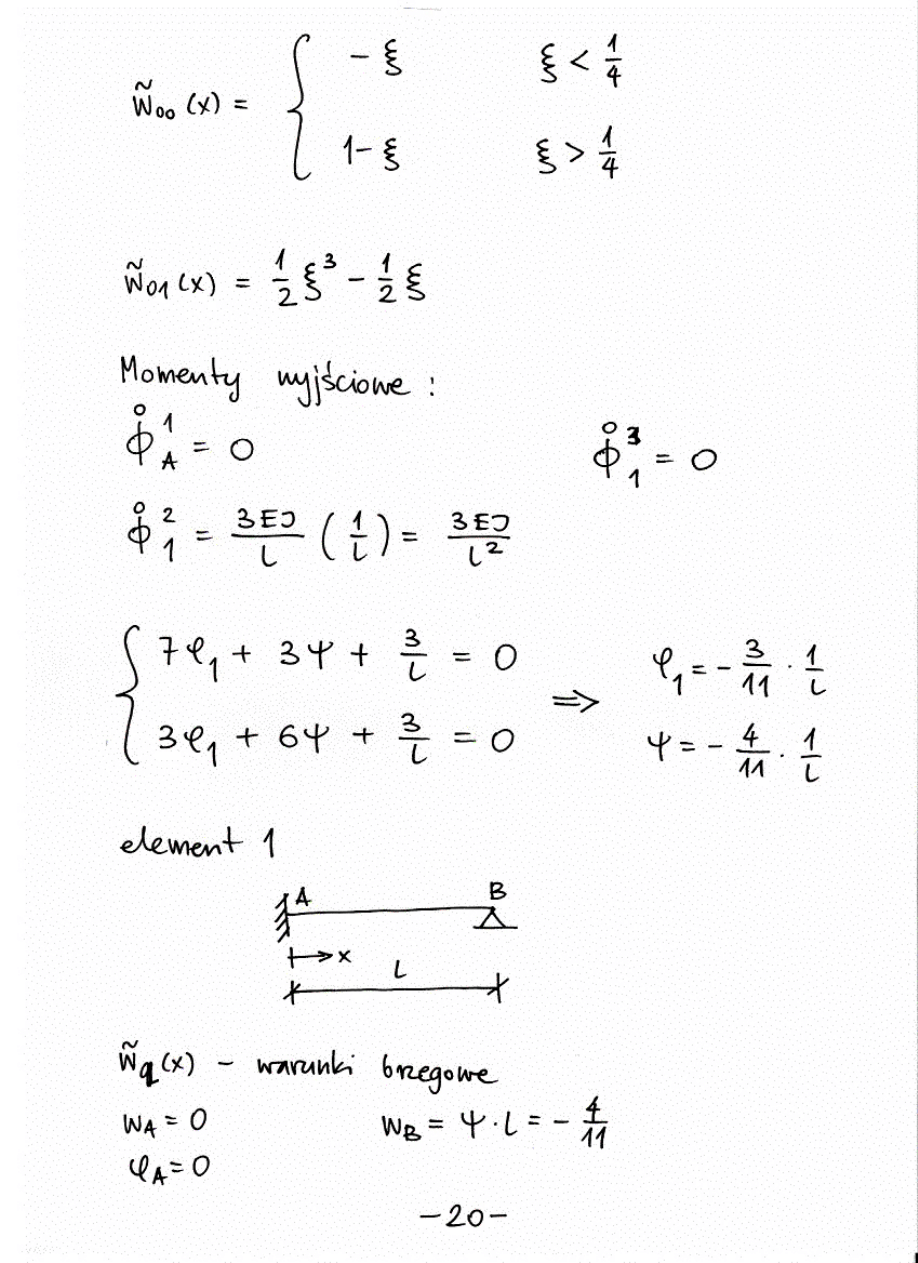 w̃₀₀(x) = { -ξ    ξ < 1/4
1-ξ    ξ > 1/4
w̃₀₁(x) = 1/2 ξ³ - 1/2 ξ
Momenty wyjściowe :
ϕ̊¹_A = 0    ϕ̊³₁ = 0
ϕ̊²₁ = 3EJ/L (1/L) = 3EJ/L²
{ 7φ₁ + 3ψ + 3/L = 0    ⇒    φ₁ = - 3/11 · 1/L
3φ₁ + 6ψ + 3/L = 0    ψ = - 4/11 · 1/L
element 1
A    B
x
L
w̃_q(x) - warunki brzegowe
w_A = 0    w_B = ψ·L = - 4/11
φ_A = 0
-20-